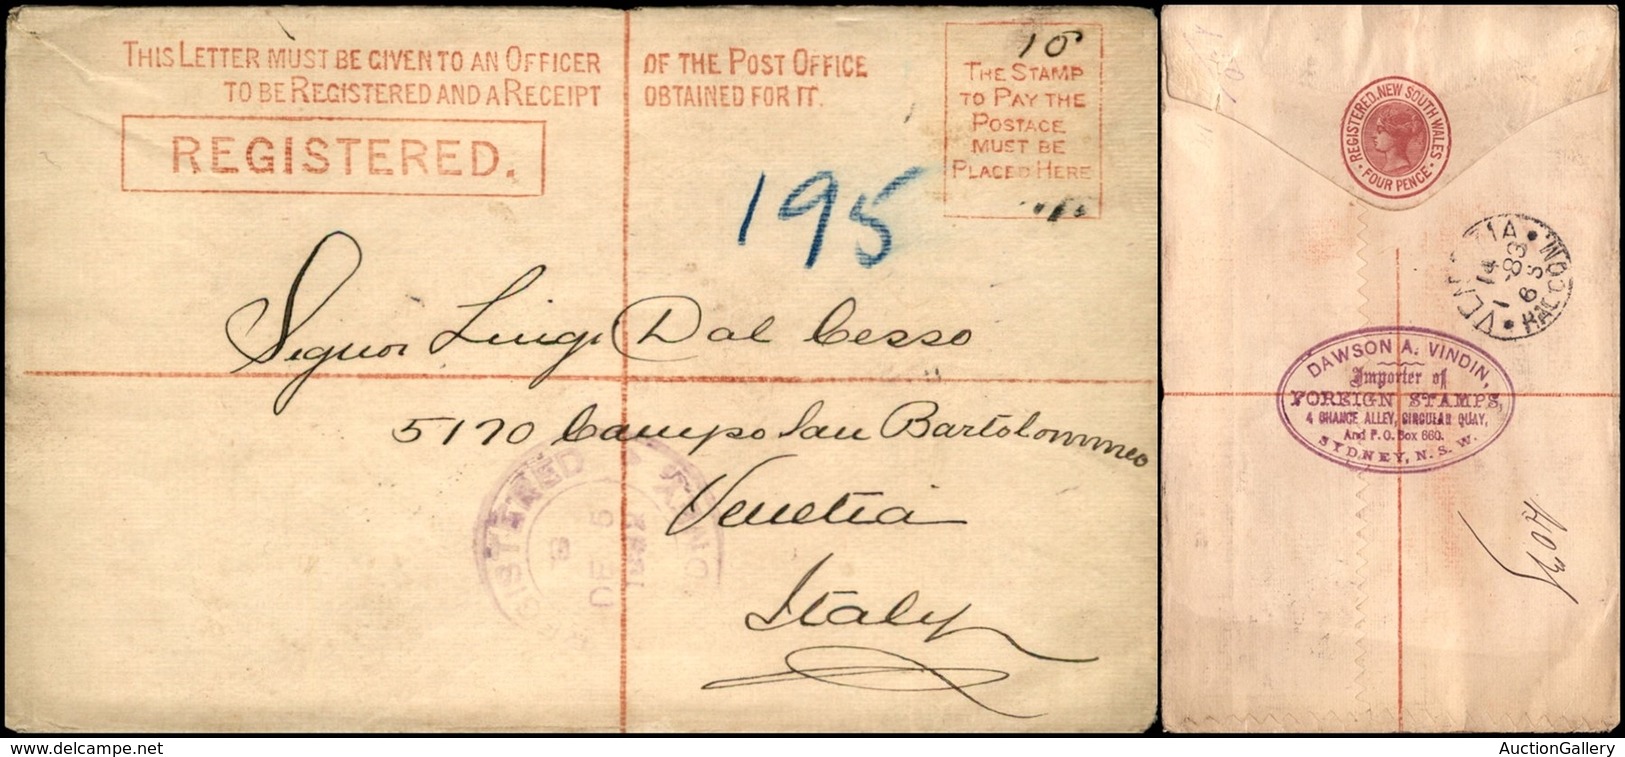 THIS LETTER MUST BE GIVEN TO AN OFFICER OF THE POST OFFICE
TO BE REGISTERED AND A RECEIPT OBTAINED FOR IT.
REGISTERED.
10
THE STAMP
TO PAY THE
POSTAGE
MUST BE
PLACED HERE
195
Signor Luigi Dal Cesso
5170 Campo San Bartolommeo
Venetia
Italy
REGISTERED
DE 5
REGISTERED. NEW SOUTH WALES
FOUR PENCE
14
1 - 83
6 S
RACCOM
DAWSON A. VINDIN,
Importer of
FOREIGN STAMPS,
4 CHANGE ALLEY, CIRCULAR QUAY,
And P.O. Box 660.
SYDNEY, N. S. W.
www.delcampe.net
AuctionGallery